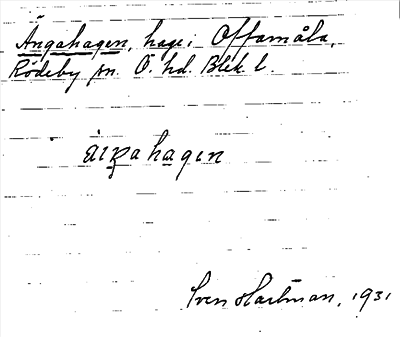 Ängahagen, hage i Offamåla,
Rödeby sn. Ö. hd. Blek. l.
Sven Hartman, 1931